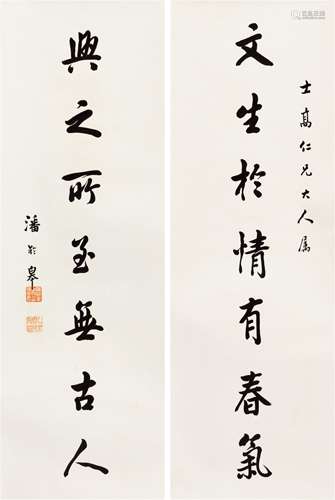 士高仁兄大人属
文生於情有春氣
興之所至無古人
潘齡皋